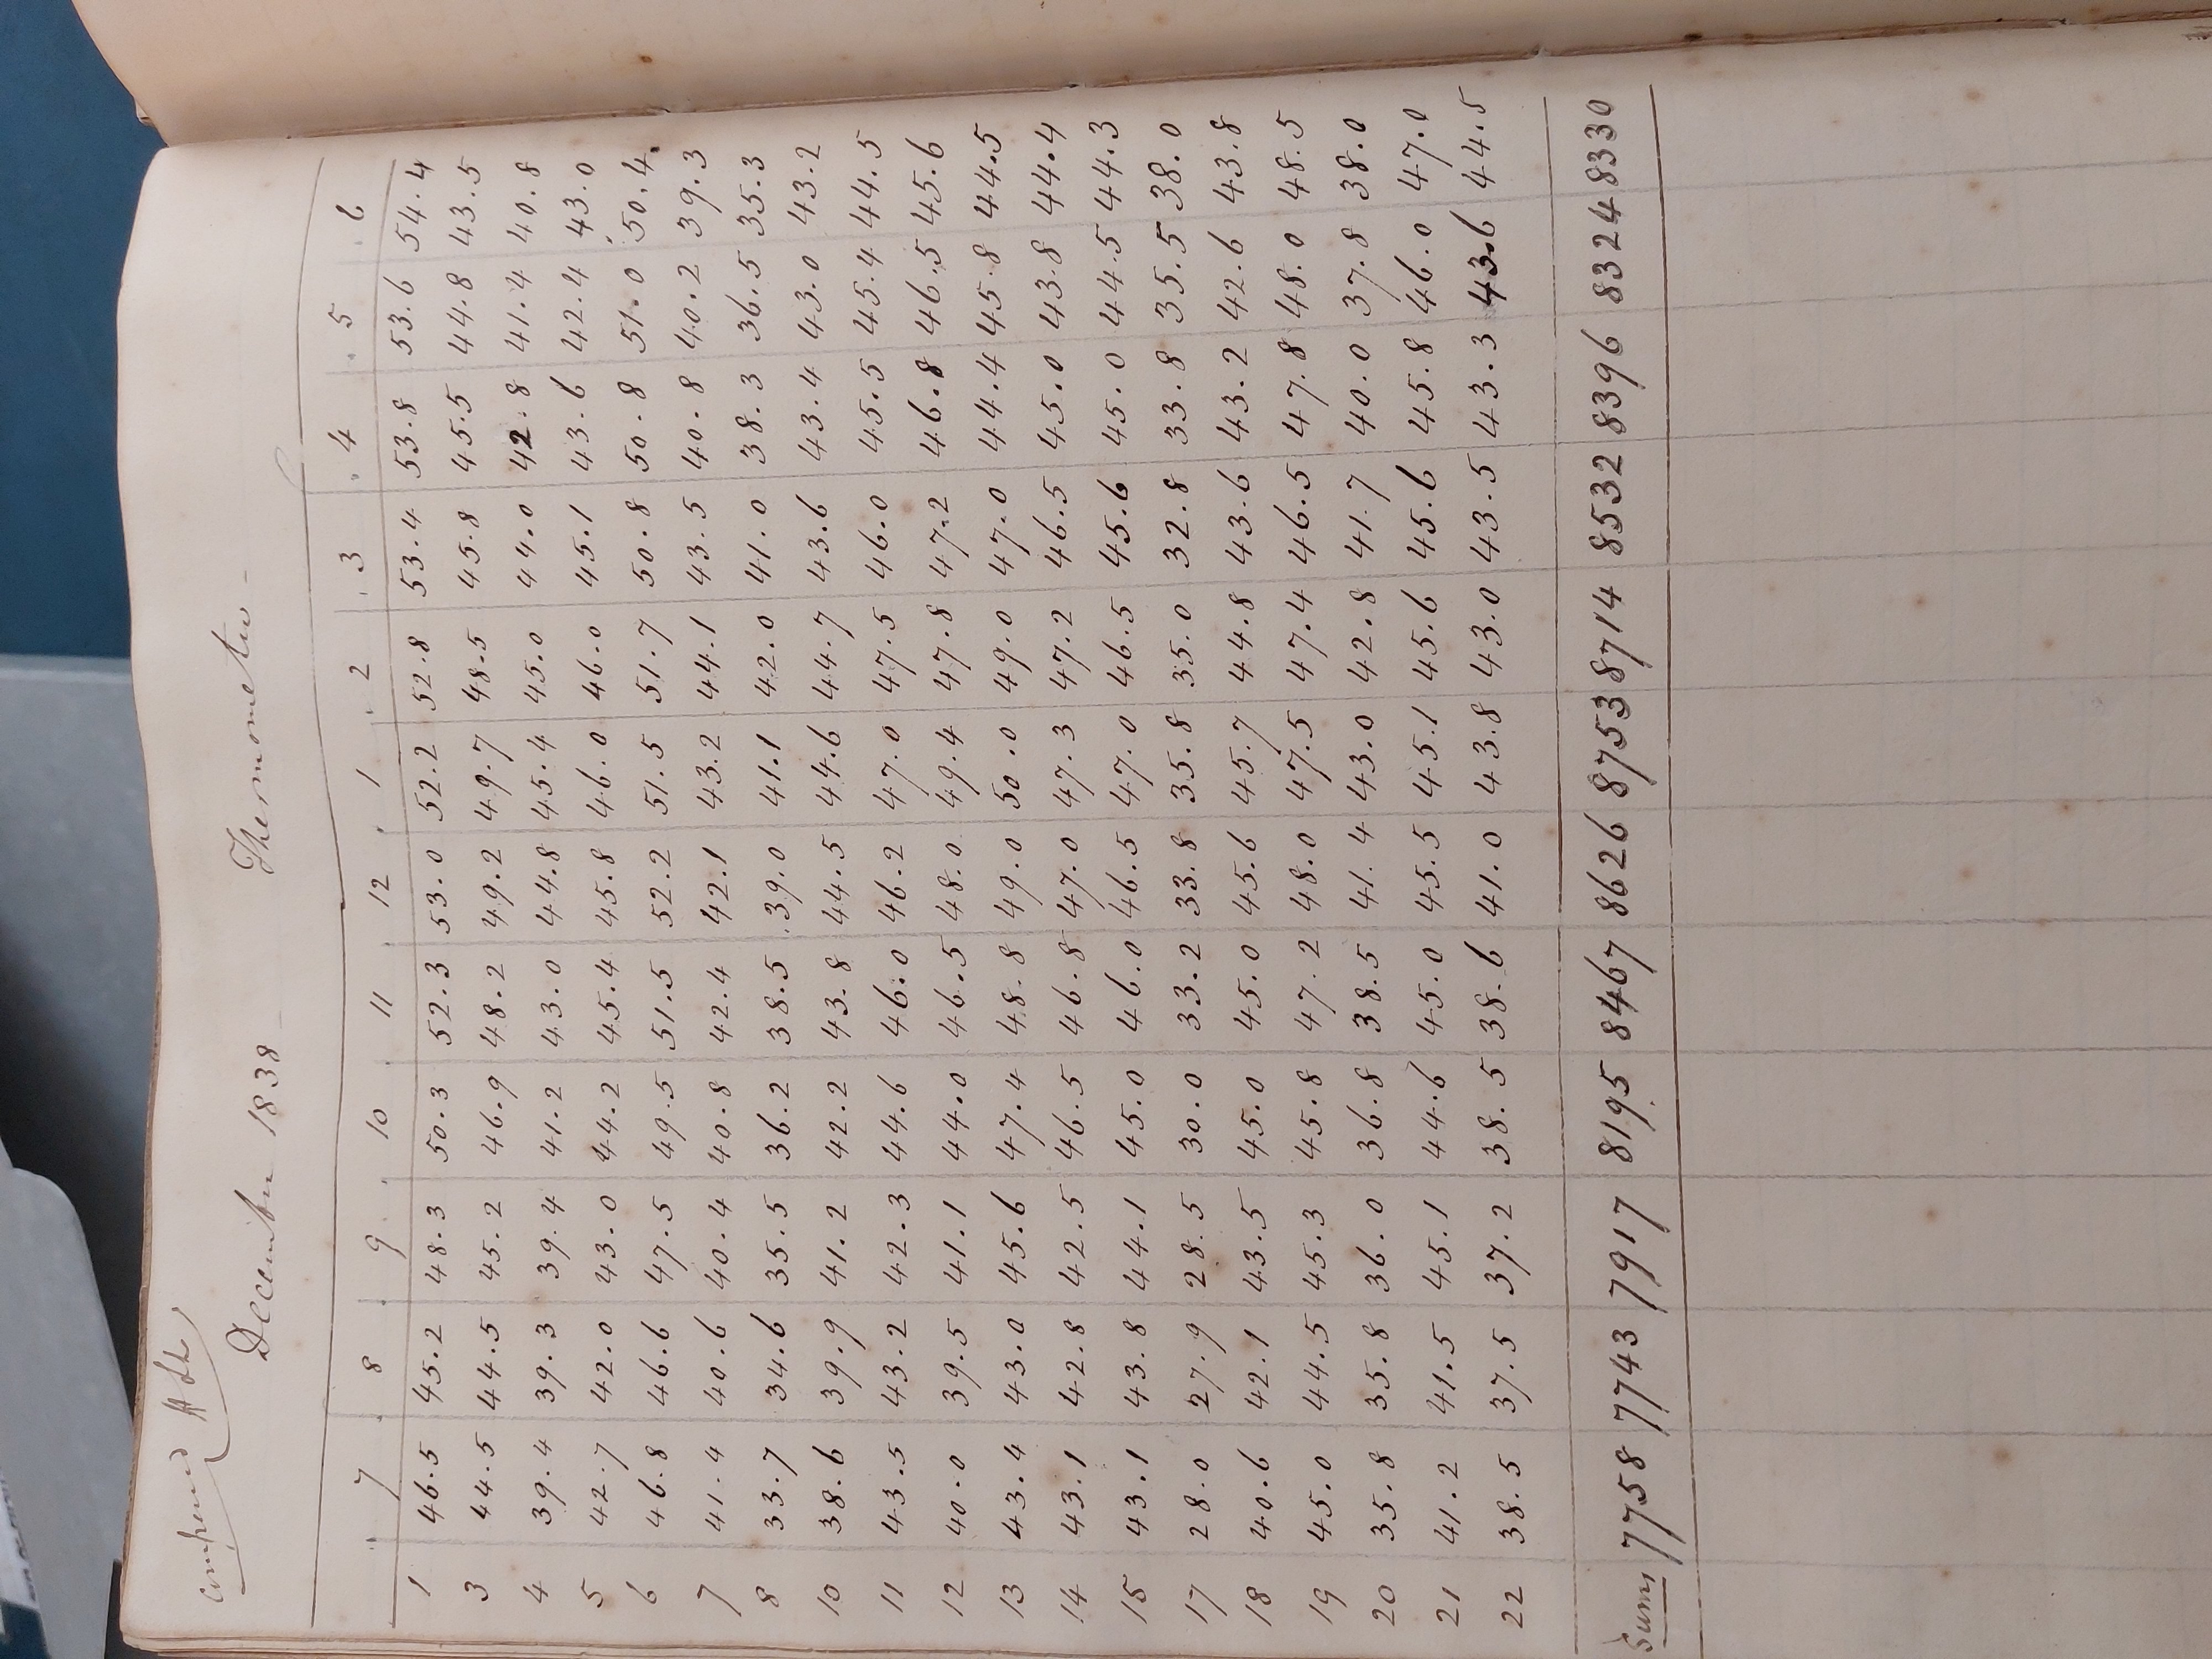 compared
December 1838 Thermometer
7 8 9 10 11 12 1 2 3 4 5 6
1 46.5 45.2 48.3 50.3 52.3 53.0 52.2 52.8 53.4 53.8 53.6 54.4
3 44.5 44.5 45.2 46.9 48.2 49.2 49.7 48.5 45.8 45.5 44.8 43.5
4 39.4 39.3 39.4 41.2 43.0 44.8 45.4 45.0 44.0 42.8 41.4 40.8
5 42.7 42.0 43.0 44.2 45.4 45.8 46.0 46.0 45.1 43.6 42.4 43.0
6 46.8 46.6 47.5 49.5 51.5 52.2 51.5 51.7 50.8 50.8 51.0 50.4
7 41.4 40.6 40.4 40.8 42.4 42.1 43.2 44.1 43.5 40.8 40.2 39.3
8 33.7 34.6 35.5 36.2 38.5 39.0 41.1 42.0 41.0 38.3 36.5 35.3
10 38.6 39.9 41.2 42.2 43.8 44.5 44.6 44.7 43.6 43.4 43.0 43.2
11 43.5 43.2 42.3 44.6 46.0 46.2 47.0 47.5 46.0 45.5 45.4 44.5
12 40.0 39.5 41.1 44.0 46.5 48.0 49.4 47.8 47.2 46.8 46.5 45.6
13 43.4 43.0 45.6 47.4 48.8 49.0 50.0 49.0 47.0 44.4 45.8 44.5
14 43.1 42.8 42.5 46.5 46.8 47.0 47.3 47.2 46.5 45.0 43.8 44.4
15 43.1 43.8 44.1 45.0 46.0 46.5 47.0 46.5 45.6 45.0 44.5 44.3
17 28.0 27.9 28.5 30.0 33.2 33.8 35.8 35.0 32.8 33.8 35.5 38.0
18 40.6 42.1 43.5 45.0 45.0 45.6 45.7 44.8 43.6 43.2 42.6 43.8
19 45.0 44.5 45.3 45.8 47.2 48.0 47.5 47.4 46.5 47.8 48.0 48.5
20 35.8 35.8 36.0 36.8 38.5 41.4 43.0 42.8 41.7 40.0 37.8 38.0
21 41.2 41.5 45.1 44.6 45.0 45.5 45.1 45.6 45.6 45.8 46.0 47.0
22 38.5 37.5 37.2 38.5 38.6 41.0 43.8 43.0 43.5 43.3 43.6 44.5
Sums 7758 7743 7917 8195 8467 8626 8753 8714 8532 8396 8324 8330